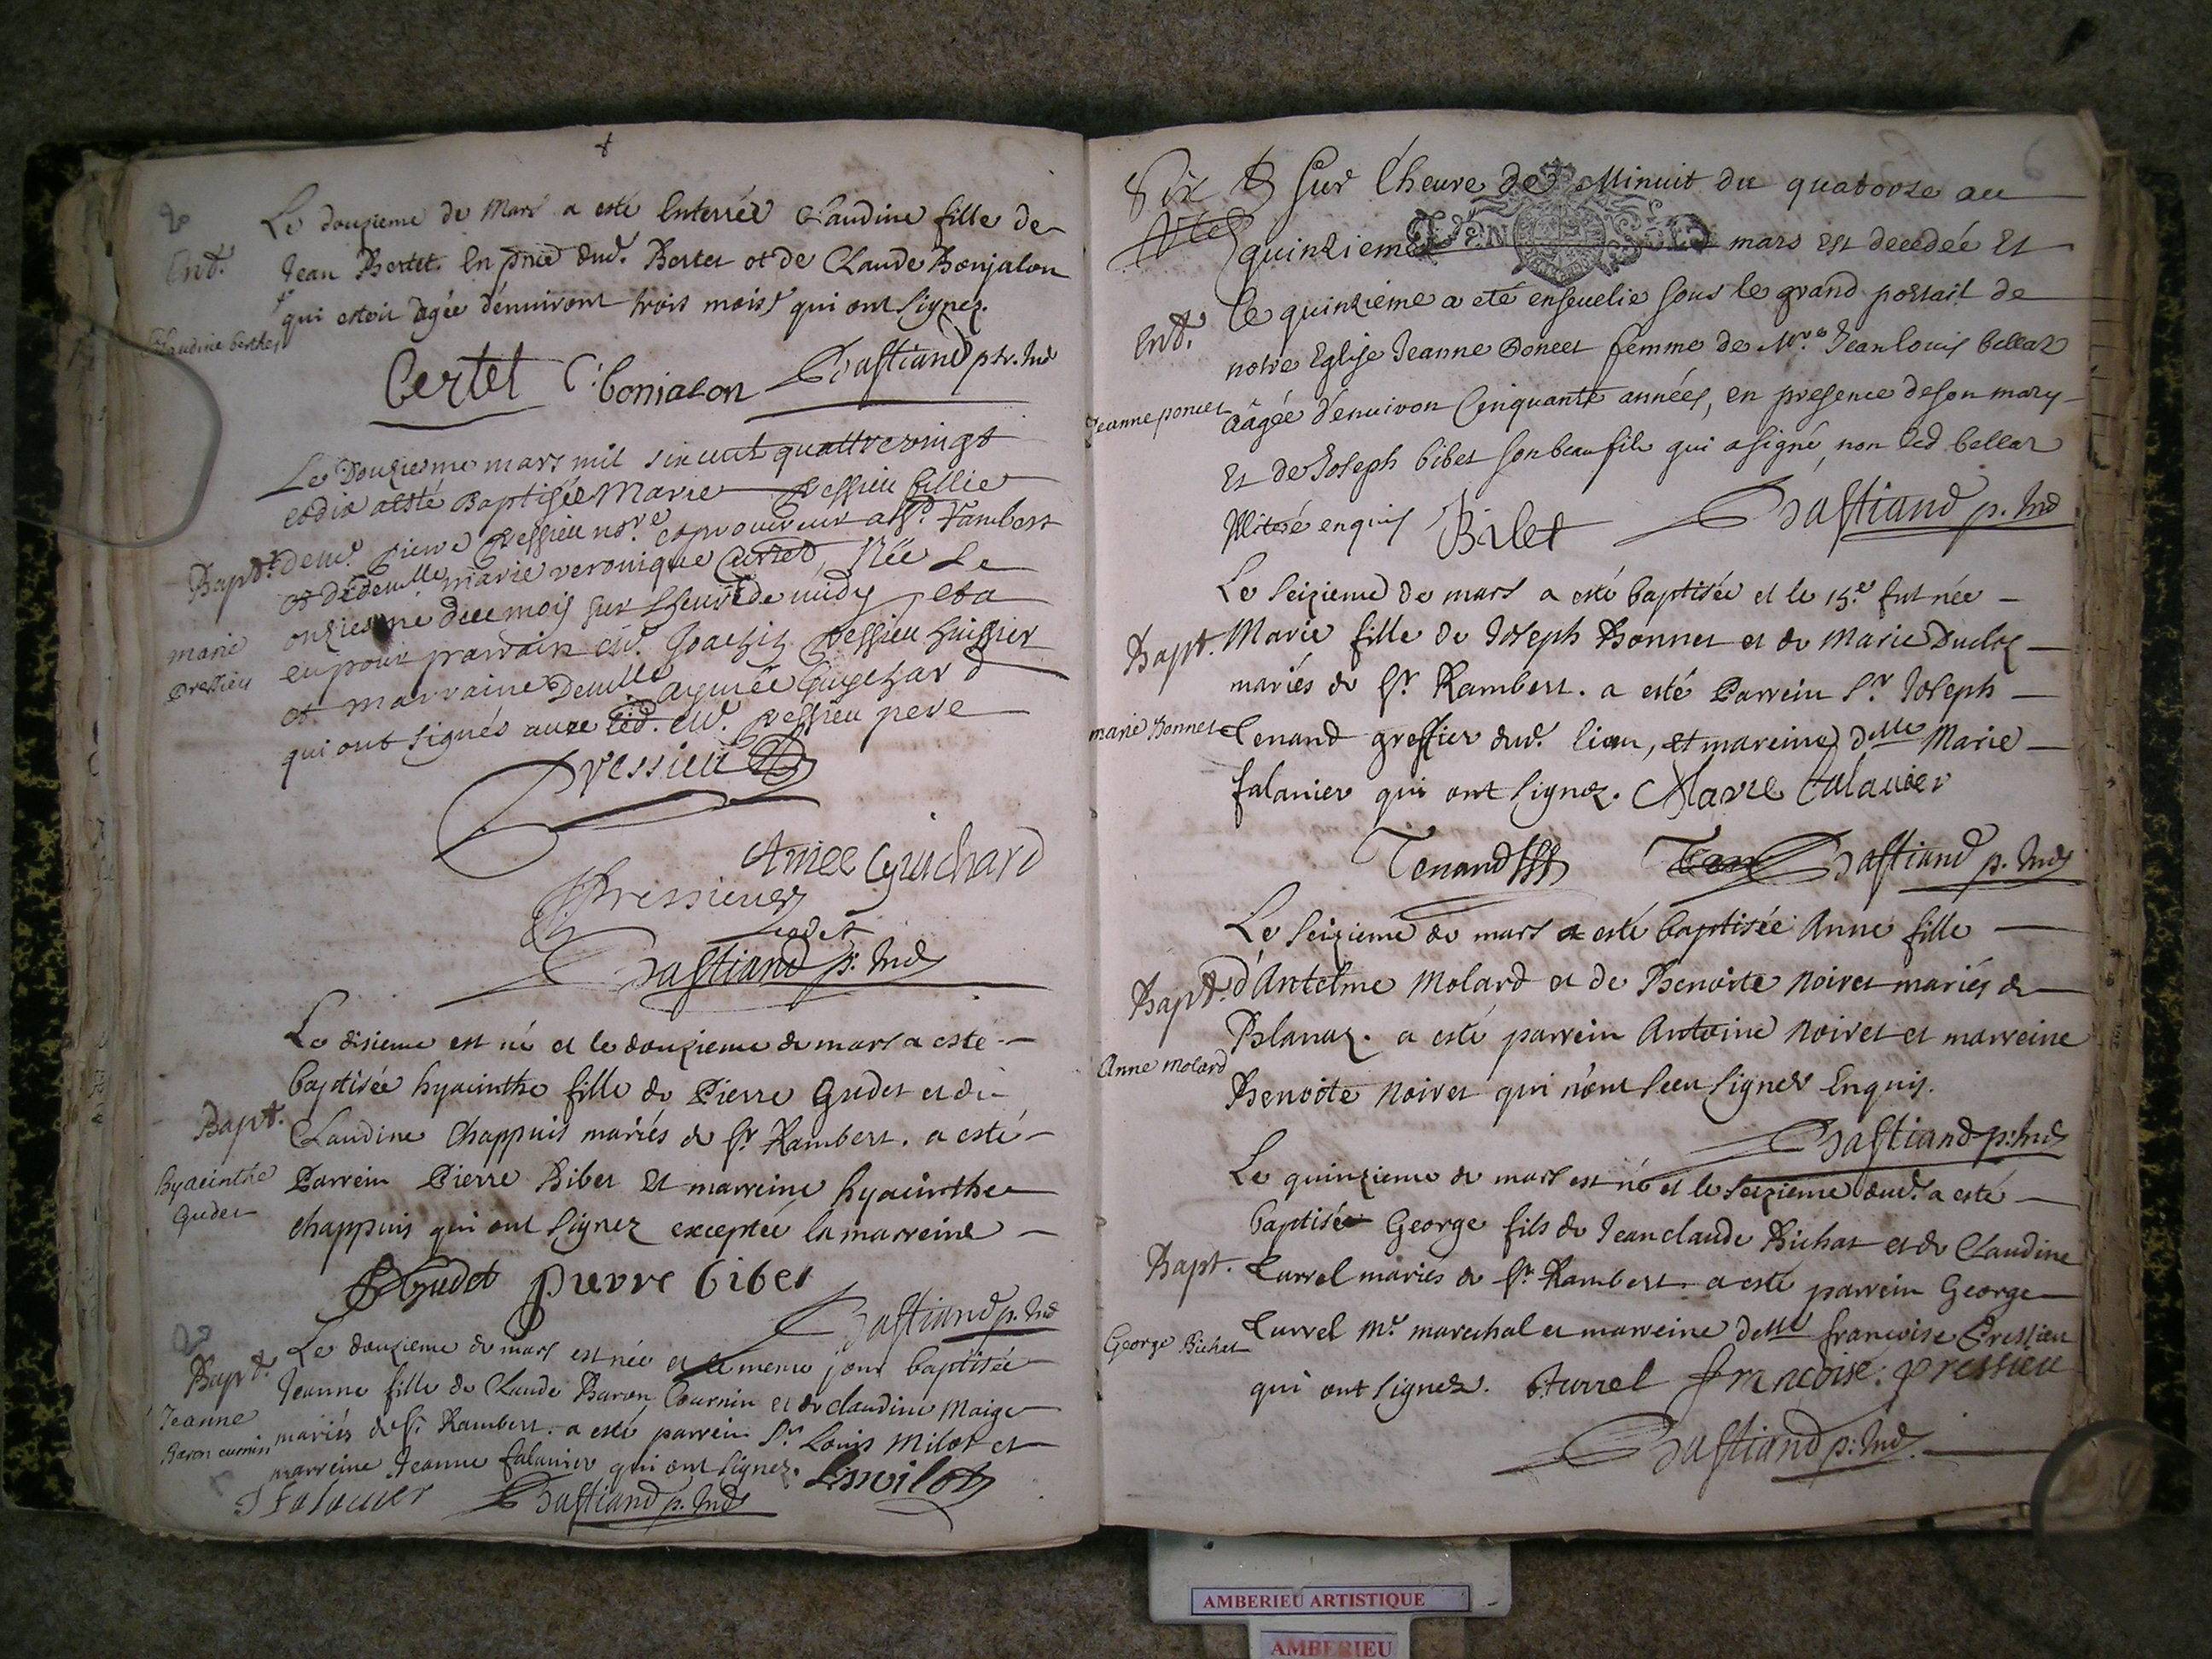 Le douzieme de Mars a esté Enterrée Claudine fille de
Ent. Jean Bertet. En pnce dud. Bertet et de Claude Bonjalon
qui estoit agée d'enuiront trois mois qui ont signez.
Claudine berthet
Bertet C: bonjalon Bastiand ptr. Ind
Le Douziesme mars mil six cent quattre vingt
et dix a esté Baptisée Marie Pressieu fillie
Bapt. de Me. Pierre Pressieu nore. et procureur a St. Rambert
et de demlle marie veronique Carret, Née Le
marie onziesme du ce mois sur Lheure de midy et a
Pressieu eu pour parrain Me. Pressieu huissier
et marraine Demlle aymée Guychard
qui ont signés auec led. Me. Pressieu pere
Pressieu
Amee Guichard
Pressieu
Bastiand p. Ind
Le disieme est né et le douzieme de mars a esté
baptisée hyacinthe fille de Pierre Gudet et de
Bapt. Claudine Chappuis mariés de St Rambert. a esté
hyacinthe Parrein Pierre Bibet Et marreine hyacinthe
Gudet chappuis qui ont signez exceptée la marreine
Gudet pierre bibet
Bastiand p. Ind
Le douzieme de mars est née et le meme jour baptisée
Bapt. Jeanne fille de Claude Baron Cournin et de claudine Maige
Jeanne mariés de St. Rambert. a esté parrein Sr Louis Milot et
Baron curnin marreine Jeanne falanier qui ont signez. L milot
J falauier Bastiand p. Ind
Six Sur l'heure de Minuit du quatorze au
quinzieme mars Est decedée Et
Ent. le quinzieme a eté enseuelie sous le grand portail de
notre Eglise Jeanne Poncet femme de Mre Jean louis bellar
Jeanne poncet aâgée d'enuiron Cinquante années, en presence de son mary
Et de Joseph bibet son beau fils qui a signé, non led bellar
Illiteré enquis Bibet Bastiand p. Ind
Le Seizieme de mars a esté baptisée et le 15e. fut née
Bapt. Marie fille de Joseph Bonnet et de Marie Duclos
mariés de St Rambert. a esté Parrein Sr Joseph
marie Bonnet Tenand greffier dud. lieu, et mareine dlle Marie
falanier qui ont signez. Marie falauier
Tenand Bastiand p. Ind
Le Seizieme de mars a esté baptisée Anne fille
Bapt. d'Antelme Molard et de Benoite Noiret mariés de
Blanaz. a esté parrein Antoine Noiret et marreine
Anne molard
Benoite Noiret qui n'ont sceu signer Enquis.
Bastiand p. Ind
Le quinzieme de mars est né et le Seizieme dud. a esté
baptisée George fils de Jean claude Bichat et de Claudine
Bapt. Turrel mariés de St Rambert. a esté parrein George
Turrel Me. marechal et marreine delle francoise Pressieu
George Bichat
qui ont signez. G turrel francoise: pressieu
Bastiand p: Ind.
AMBERIEU ARTISTIQUE
AMBERIEU